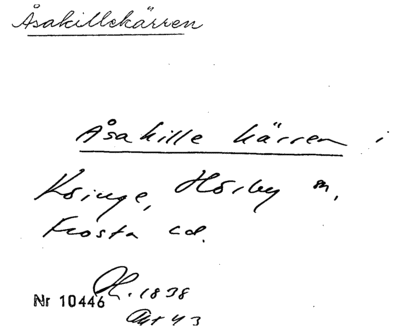 Åsakillekärren
Åsakille kärren i
Kringe, Hörby sn,
Frosta hd.
Nr 10446 Ch. 1838
Akt 43